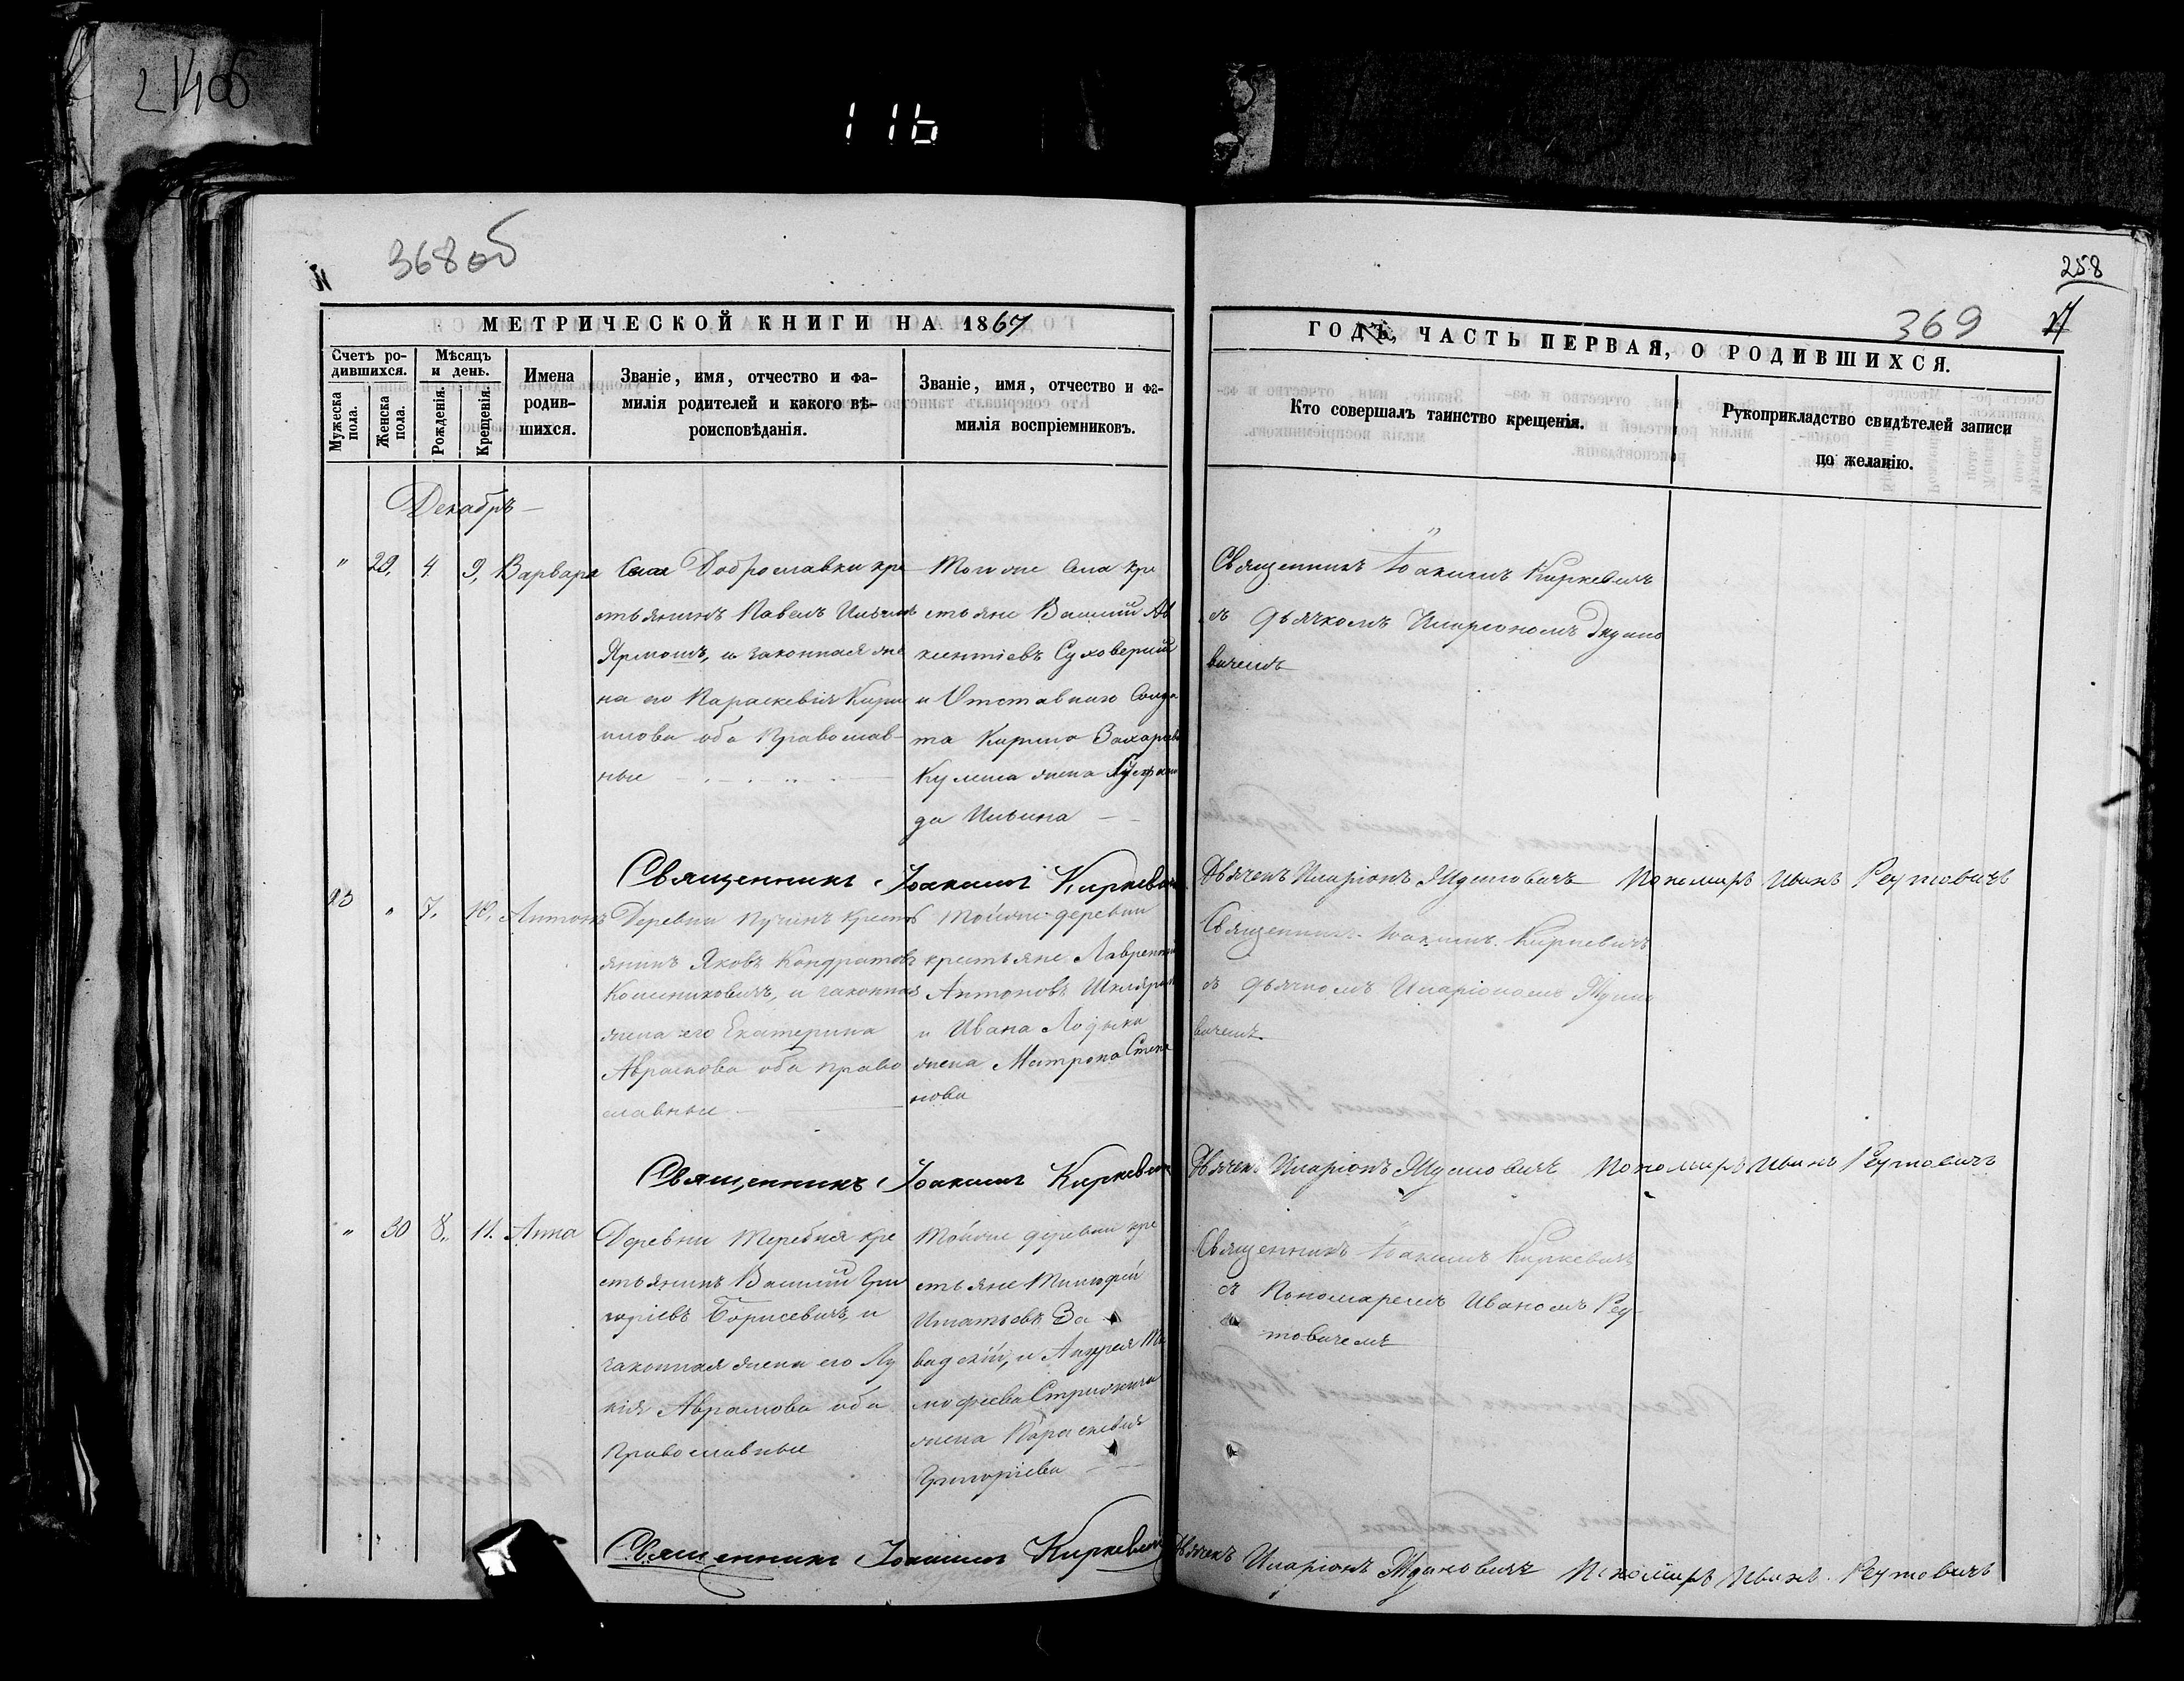 21406
116
368 об
258
369
МЕТРИЧЕСКОЙ КНИГИ НА 1867
ГОДЪ, ЧАСТЬ ПЕРВАЯ, О РОДИВШИХСЯ.
Счетъ ро-
дившихся.
Мужеска
пола.
Женска
пола.
Мѣсяцъ
и день.
Рожденія.
Крещенія.
Имена
родив-
шихся.
Званіе, имя, отчество и фа-
милія родителей и какого вѣ-
роисповѣданія.
Званіе, имя, отчество и фа-
милія воспріемниковъ.
Кто совершалъ таинство крещенія.
Рукоприкладство свидѣтелей записи
по желанію.
Декабрь
" 29, 4. 9, Варвара
Села Доброславки кре
стьянинъ Павелъ Ильинъ
Ярмошъ, и законная же
на его Параскевія Кири
лова оба Православ-
ные
Тогоже села кре
стьяне Василій Ав
ксентіевъ Суховерхій
и Отставнаго Солда
та Кирила Захарьева
Кулеша жена
да Ильина
Священникъ Іоакимъ Киркевичъ
съ дьячкомъ Иларіономъ Ждано
вичемъ
Священникъ Іоакимъ Киркевичъ Дьячекъ Иларіонъ Ждановичъ Пономарь Иванъ Реутовичъ
23 " 7. 10, Антонъ
Деревни Пучинъ кресть
янинъ Яковъ Кондратовъ
Колесниковичъ, и законная
жена его Екатерина
Абрамова оба право
славные
Тойже деревни
крестьяне Лаврентій
Антоновъ Шкляръ
и Ивана Лодыки
жена Матрона Степа
нова
Священникъ Іоакимъ Киркевичъ
съ дьячкомъ Иларіономъ Ждано
вичемъ
Священникъ Іоакимъ Киркевичъ Дьячекъ Иларіонъ Ждановичъ Пономарь Иванъ Реутовичъ
" 30 8. 11. Анна
Деревни Теребня кре
стьянинъ Василій Гри
горіевъ Борисевичъ, и
законная жена его Лу
кія Абрамова оба
Православные
Тойже деревни кре
стьяне Тимофей
Игнатьевъ За
вадскій, и Андрея Ти
мофеева Стрижевича
жена Параскевія
Григоріева
Священникъ Іоакимъ Киркевичъ
съ Пономаремъ Иваномъ Реу-
товичемъ
Священникъ Іоакимъ Киркевичъ Дьячекъ Иларіонъ Ждановичъ Пономарь Иванъ Реутовичъ